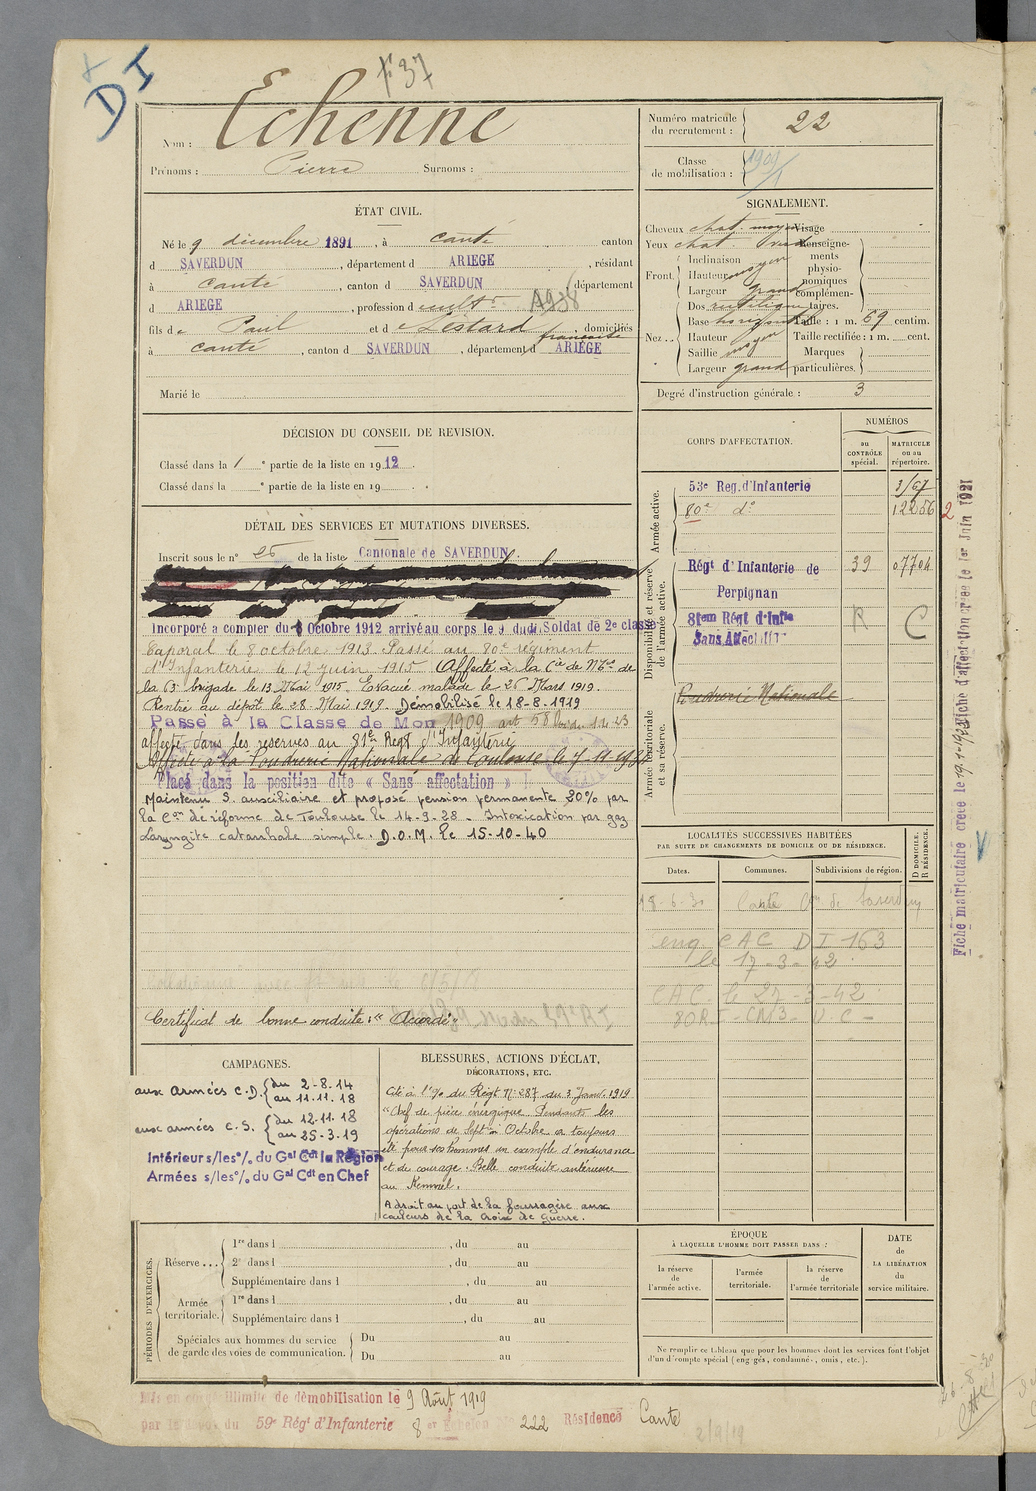 DI
F 37
Nom : Echenne
Prénoms : Pierre Surnoms :
Numéro matricule du recrutement : 22
Classe de mobilisation : 1909/1
ÉTAT CIVIL.
Né le 9 décembre 1891, à Canté canton
d SAVERDUN, département d ARIEGE, résidant
à Canté, canton d SAVERDUN, département
d ARIEGE, profession d cultr A938
fils de Paul et de Lestard française, domiciliés
à Canté, canton d SAVERDUN, département d ARIÈGE
Marié le
SIGNALEMENT.
Cheveux chat. moyen
Yeux chat.
Front. Inclinaison moyen
Hauteur moyen
Largeur grand
Nez.. Dos rectiligne
Base horizontal
Hauteur moyen
Saillie moyen
Largeur grand
Visage
Renseignements physionomiques complémentaires.
Taille : 1 m. 69 centim.
Taille rectifiée : 1 m. cent.
Marques particulières.
Degré d'instruction générale : 3
DÉCISION DU CONSEIL DE REVISION.
Classé dans la 1 e partie de la liste en 1912.
Classé dans la e partie de la liste en 19 .
DÉTAIL DES SERVICES ET MUTATIONS DIVERSES.
Inscrit sous le n° 26 de la liste Cantonale de SAVERDUN.
Incorporé à compter du 8 Octobre 1912 arrivé au corps le 9 dudit Soldat de 2e classe
Caporal le 8 octobre 1913. Passé au 80e régiment
d'Infanterie le 12 juin 1915 (Affecté à la Cie de Mses de
la 63e brigade le 13 Mai 1915. Evacué malade le 26 Mars 1919.
Rentré au dépôt le 28 Mai 1919. Démobilisé le 18-8-1919
Passé à la Classe de Mon 1909 art 58 loi du 1.4.23
affecté dans les réserves au 81e Regt d'Infanterie
Affecté à la Poudrerie Nationale de Toulouse le 7-11-1931
Placé dans la position dite « Sans affectation »
Maintenu S. auxiliaire et proposé pension permanente 20% par
la Con de réforme de Toulouse le 14-9-28 - Intoxication par gaz
Laryngite catarrhale simple. D.O.M. le 15-10-40
Certificat de bonne conduite : "Accordé"
CORPS D'AFFECTATION.
NUMÉROS
au CONTRÔLE spécial.
MATRICULE ou au répertoire.
Armée active.
53e Reg. d'Infanterie 3/67
80e d° 12256 2
Disponibilité et réserve de l'armée active.
Régt d'Infanterie de Perpignan 39 07704
81em Régt d'Infie R C
Sans Affectation
Armée territoriale et sa réserve.
Poudrerie Nationale
LOCALITÉS SUCCESSIVES HABITÉES
PAR SUITE DE CHANGEMENTS DE DOMICILE OU DE RÉSIDENCE.
Dates. Communes. Subdivisions de région. D DOMICILE. R RÉSIDENCE.
18-6-30 Canté Con de Saverdun
enq. CAC DI 163
le 17-3-42
CAC. le 27-3-42
80RI-CN3-UC-
CAMPAGNES.
aux armées C.D. { du 2-8-14
au 11-11-18
aux armées C.S. { du 12-11-18
au 25-3-19
Intérieur s/les°/. du Gal Cdt la Région
Armées s/les°/. du Gal Cdt en Chef
BLESSURES, ACTIONS D'ÉCLAT,
DÉCORATIONS, ETC.
Cité à l'o/ du Régt N° 287 du 3 Janv. 1919
"Chef de pièce énergique. Pendant les
opérations de Septbre Octobre a toujours
été pour ses hommes un exemple d'endurance
et de courage. Belle conduite antérieure
au Kemmel.
A droit au port de la fourragère aux
couleurs de la Croix de guerre.
PÉRIODES D'EXERCICES.
Réserve ... 1re dans l , du au
2e dans l , du au
Supplémentaire dans l , du au
Armée territoriale. 1re dans l , du au
Supplémentaire dans l , du au
Spéciales aux hommes du service de garde des voies de communication. Du au
Du au
ÉPOQUE
À LAQUELLE L'HOMME DOIT PASSER DANS :
la réserve de l'armée active.
l'armée territoriale.
la réserve de l'armée territoriale
DATE de LA LIBÉRATION du service militaire.
Ne remplir ce tableau que pour les hommes dont les services font l'objet
d'un décompte spécial (engagés, condamnés, omis, etc.).
Mis en congé illimité de démobilisation le 9 Août 1919
par le dépôt du 59e Régt d'Infanterie 8 er Echelon 222 Résidence Canté
2/9/19
Fiche matriculaire créée le 19-1-1933 Fiche d'affectation créée le 1er Juin 1921